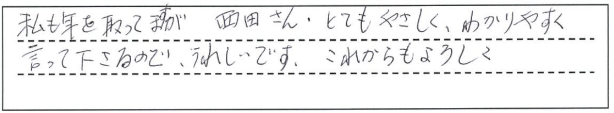 私も年を取ってますが 西田さん・とてもやさしく、わかりやすく
言って下さるので、うれしいです、これからもよろしく